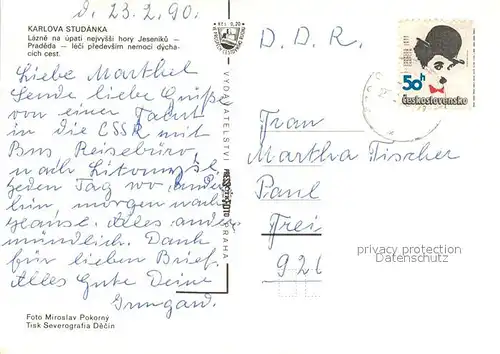 d. 23.2.90.
KARLOVA STUDÁNKA
Lázně na úpatí nejvyšší hory Jeseníků –
Praděda – léčí především nemoci dýcha-
cích cest.
Liebe Marthel
Sende liebe Grüße
von einer Fahrt
in die CSSR mit
Bus Reisebüro,
nach Litomyšl
jeden Tag wo anders
hin, morgen nach
Hause. Alles andere
mündlich. Dank
für lieben Brief.
Alles Gute Deine
Irmgard.
Foto Miroslav Pokorný
Tisk Severografia Děčín
VYDAVATELSTVÍ PRESSFOTO PRAHA
D.D.R.
50h
Československo
Frau
Martha Fischer
Paul
Frei
926
privacy protection
Datenschutz